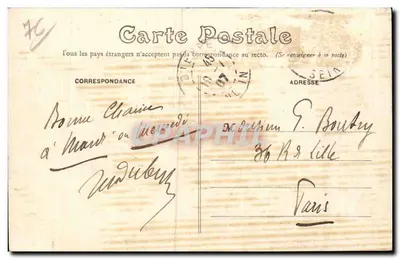 7€
Carte Postale
Tous les pays étrangers n'acceptent pas la correspondance au recto. (Se renseigner à la poste)
CORRESPONDANCE
ADRESSE
45
07
IN
SEIN
Bonne Chance
à Mardi ou mercredi
Monsieur G. Boutry
30 R de Lille
Paris
CPAPHIL